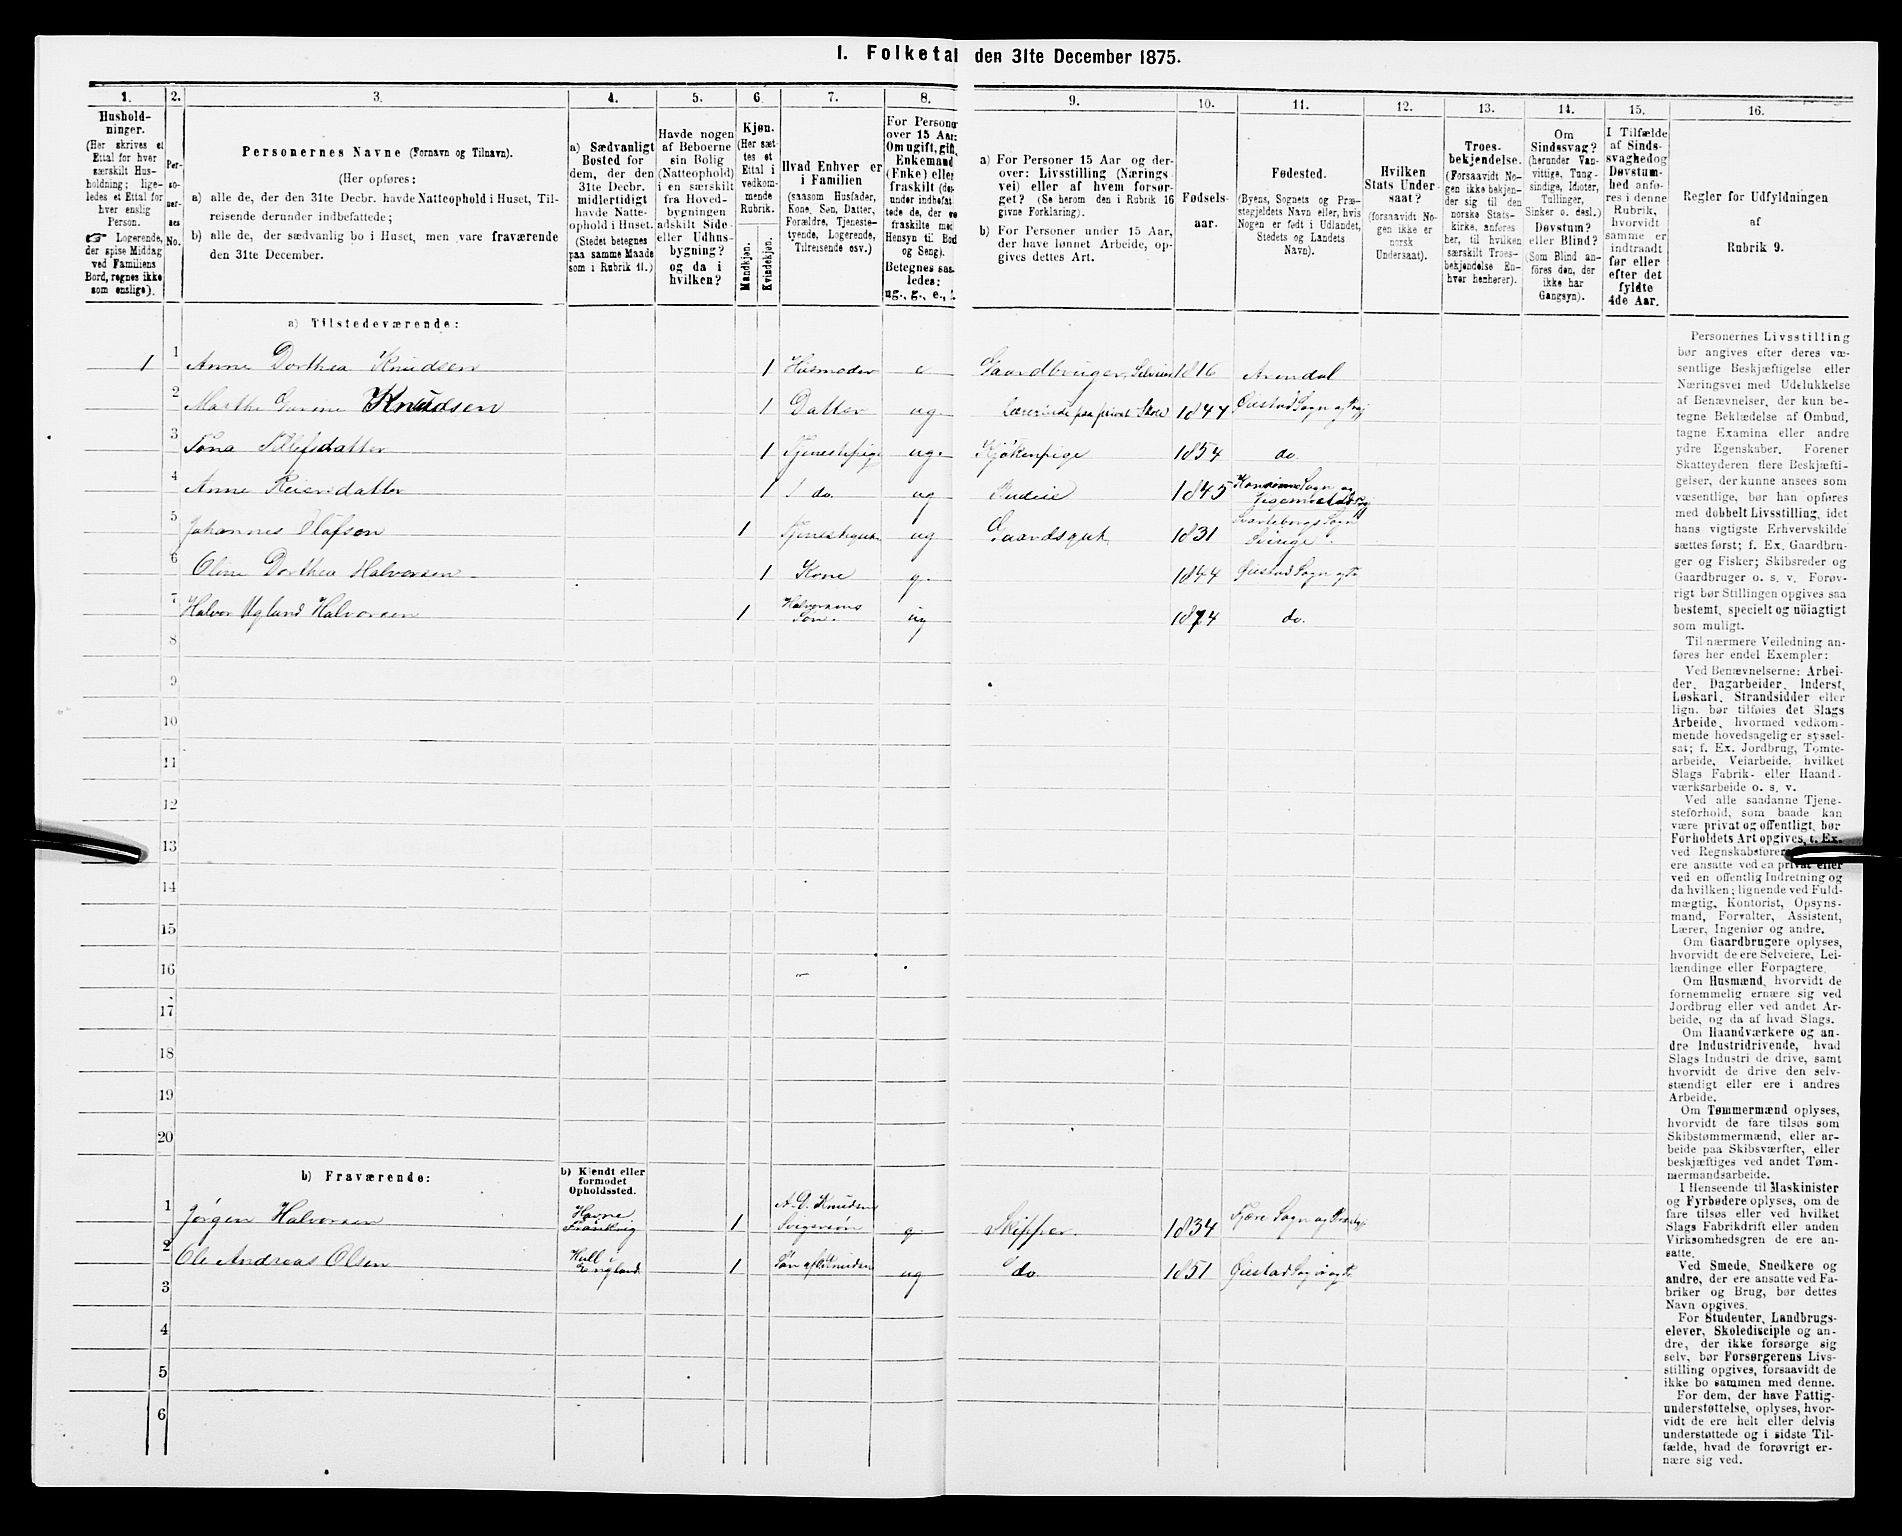 I. Folketal den 31te December 1875.
1. 2. 3. 4. 5. 6. 7. 8. 9. 10. 11. 12. 13. 14. 15. 16.
Hushold-
ninger.
(Her skrives et
Ettal for hver
særskilt Hus-
holdning; lige-
ledes et Ettal for
hver enslig
Person.
☞ Logerende,
der spise Middag
ved Familiens
Bord, regnes ikke
som enslige).
Per-
so-
ner-
nes
No.
Personernes Navne (Fornavn og Tilnavn).
(Her opføres:
a) alle de, der den 31te Decbr. havde Natteophold i Huset, Til-
reisende derunder indbefattede;
b) alle de, der sædvanlig bo i Huset, men vare fraværende
den 31te December.
a) Sædvanligt
Bosted for
dem, der den
31te Decbr.
midlertidigt
havde Natte-
ophold i Huset.
(Stedet betegnes
paa samme Maade
som i Rubrik 11.)
Havde nogen
af Beboerne
sin Bolig
(Natteophold)
i en særskilt
fra Hoved-
bygningen
adskilt Side-
eller Udhus-
bygning?
og da i
hvilken?
Kjøn.
(Her sæt-
tes et
Ettal i
vedkom-
mende
Rubrik.
Mandkjøn.
Kvindekjøn.
Hvad Enhver er
i Familien
(saasom Husfader,
Kone, Søn, Datter,
Forældre, Tjeneste-
tyende, Logerende,
Tilreisende osv.)
For Persone
over 15 Aar:
Om ugift, gift,
Enkemand
(Enke) elle
fraskilt (de
under indbefat
tede de, der e
fraskilte med
Hensyn til Bo
og Seng).
Betegnes saa
ledes:
ug., g., e., f.
a) For Personer 15 Aar og der-
over: Livsstilling (Nærings-
vei) eller af hvem forsør-
get? (Se herom den i Rubrik 16
givne Forklaring).
b) For Personer under 15 Aar,
der have lønnet Arbeide, op-
gives dettes Art.
Fødsels-
aar.
Fødested.
(Byens, Sognets og Præ-
stegjeldets Navn eller, hvis
Nogen er født i Udlandet,
Stedets og Landets
Navn).
Hvilken
Stats Under-
saat?
(forsaavidt No-
gen ikke er
norsk
Undersaat).
Troes-
bekjendelse.
(Forsaavidt No-
gen ikke bekjen-
der sig til den
norske Stats-
kirke, anføres
her, til hvilken
særskilt Troes-
bekjendelse En-
hver henhører).
Om
Sindssvag?
(herunder Van-
vittige, Tung-
sindige, Idioter,
Tullinger,
Sinker o. desl.)
Døvstum?
eller Blind?
(Som Blind an-
føres den, der
ikke har
Gangsyn).
I Tilfælde
af Sinds-
svaghed og
Døvstum-
hed anfø-
res i denne
Rubrik,
hvorvidt
samme er
indtraadt
før eller
efter det
fyldte
4de Aar.
Regler for Udfyldningen
af
Rubrik 9.
a) Tilstedeværende:
1 1 Anne Dorthea Knudsen 1 Husmoder e Gaardbruger, Selveier 1816 Arendal
2 Marthe Knudsen 1 Datter ug. Lærerinde paa privat Skole 1844 Øiestad Sogn og
3 1 Tjenestepige ug. Kjøkenpige 1854 do.
4 Anne Reiersdatter 1 do. ug Budeie 1845 Sogn og
5 Johannes Olafson 1 ug Gaardsgut 1831 Sogn
Sverige.
6 Oline Dorthea Halvorsen 1 Kone g. 1844 Øiestad Sogn
7 Halvor Ugland Halvorsen 1 Halvorsens
Søn. ug 1874 do.
8
9
10
11
12
13
14
15
16
17
18
19
20
b) Fraværende:
b) Kjendt eller
formodet
Opholdssted.
1 Jørgen Halvorsen Havre
Frankrig 1 A. D. Knudsens
Svigersøn g. Skipper. 1834 Fjære Sogn og
2 Ole Andreas Olsen Hull i
England 1 Søn af Knudsen ug do. 1851 Øiestad
3
4
5
6
Personernes Livsstilling
bør angives efter deres væ-
sentlige Beskjæftigelse eller
Næringsvei med Udelukkelse
af Benævnelser, der kun be-
tegne Beklædelse af Ombud,
tagne Examina eller andre
ydre Egenskaber. Forener
Skatteyderen flere Beskjæfti-
gelser, der kunne ansees som
væsentlige, bør han opføres
med dobbelt Livsstilling, idet
hans vigtigste Erhvervskilde
sættes først; f. Ex. Gaardbru-
ger og Fisker; Skibsreder og
Gaardbruger o. s. v. Forøv-
rigt bør Stillingen opgives saa
bestemt, specielt og nöiagtigt
som muligt.
Til nærmere Veiledning an-
føres her endel Exempler:
Ved Benævnelserne: Arbei-
der, Dagarbeider, Inderst,
Løskarl, Strandsidder eller
lign. bør tilføies det Slags
Arbeide, hvormed vedkom-
mende hovedsagelig er syssel-
sat; f. Ex. Jordbrug, Tomte-
arbeide, Veiarbeide, hvilket
Slags Fabrik- eller Haand-
værksarbeide o. s. v.
Ved alle saadanne Tjene-
steforhold, som baade kan
være privat og offentligt, bør
Forholdets Art opgives, t. Ex.
ved Regnskabsfører
ere ansatte ved en privat eller
ved en offentlig Indretning og
da hvilken; lignende ved Fuld-
mægtig, Kontorist, Opsyns-
mand, Forvalter, Assistent,
Lærer, Ingeniør og andre.
Om Gaardbrugere oplyses,
hvorvidt de ere Selveiere, Lei-
lændinge eller Forpagtere.
Om Husmænd, hvorvidt de
fornemmelig ernære sig ved
Jordbrug eller ved andet Ar-
beide, og da af hvad Slags.
Om Haandværkere og an-
dre Industridrivende, hvad
Slags Industri de drive, samt
hvorvidt de drive den selv-
stændigt eller ere i andres
Arbeide.
Om Tømmermænd oplyses,
hvorvidt de fare tilsøs som
Skibstømmermænd, eller ar-
beide paa Skibsværfter, eller
beskjæftiges ved andet Tøm-
mermandsarbeide.
I Henseende til Maskinister
og Fyrbødere oplyses, om de
fare tilsøs eller ved hvilket
Slags Fabrikdrift eller anden
Virksomhedsgren de ere an-
satte.
Ved Smede, Snedkere og
andre, der ere ansatte ved Fa-
briker og Brug, bør dettes
Navn opgives.
For Studenter, Landbrugs-
elever, Skoledisciple og an-
dre, der ikke forsørge sig
selv, bør Forsørgerens Livs-
stilling opgives, forsaavidt de
ikke bo sammen med denne.
For dem, der have Fattig-
understøttelse, oplyses, hvor-
vidt de ere helt eller delvis
understøttede og i sidste Til-
fælde, hvad de forøvrigt er-
nære sig ved.